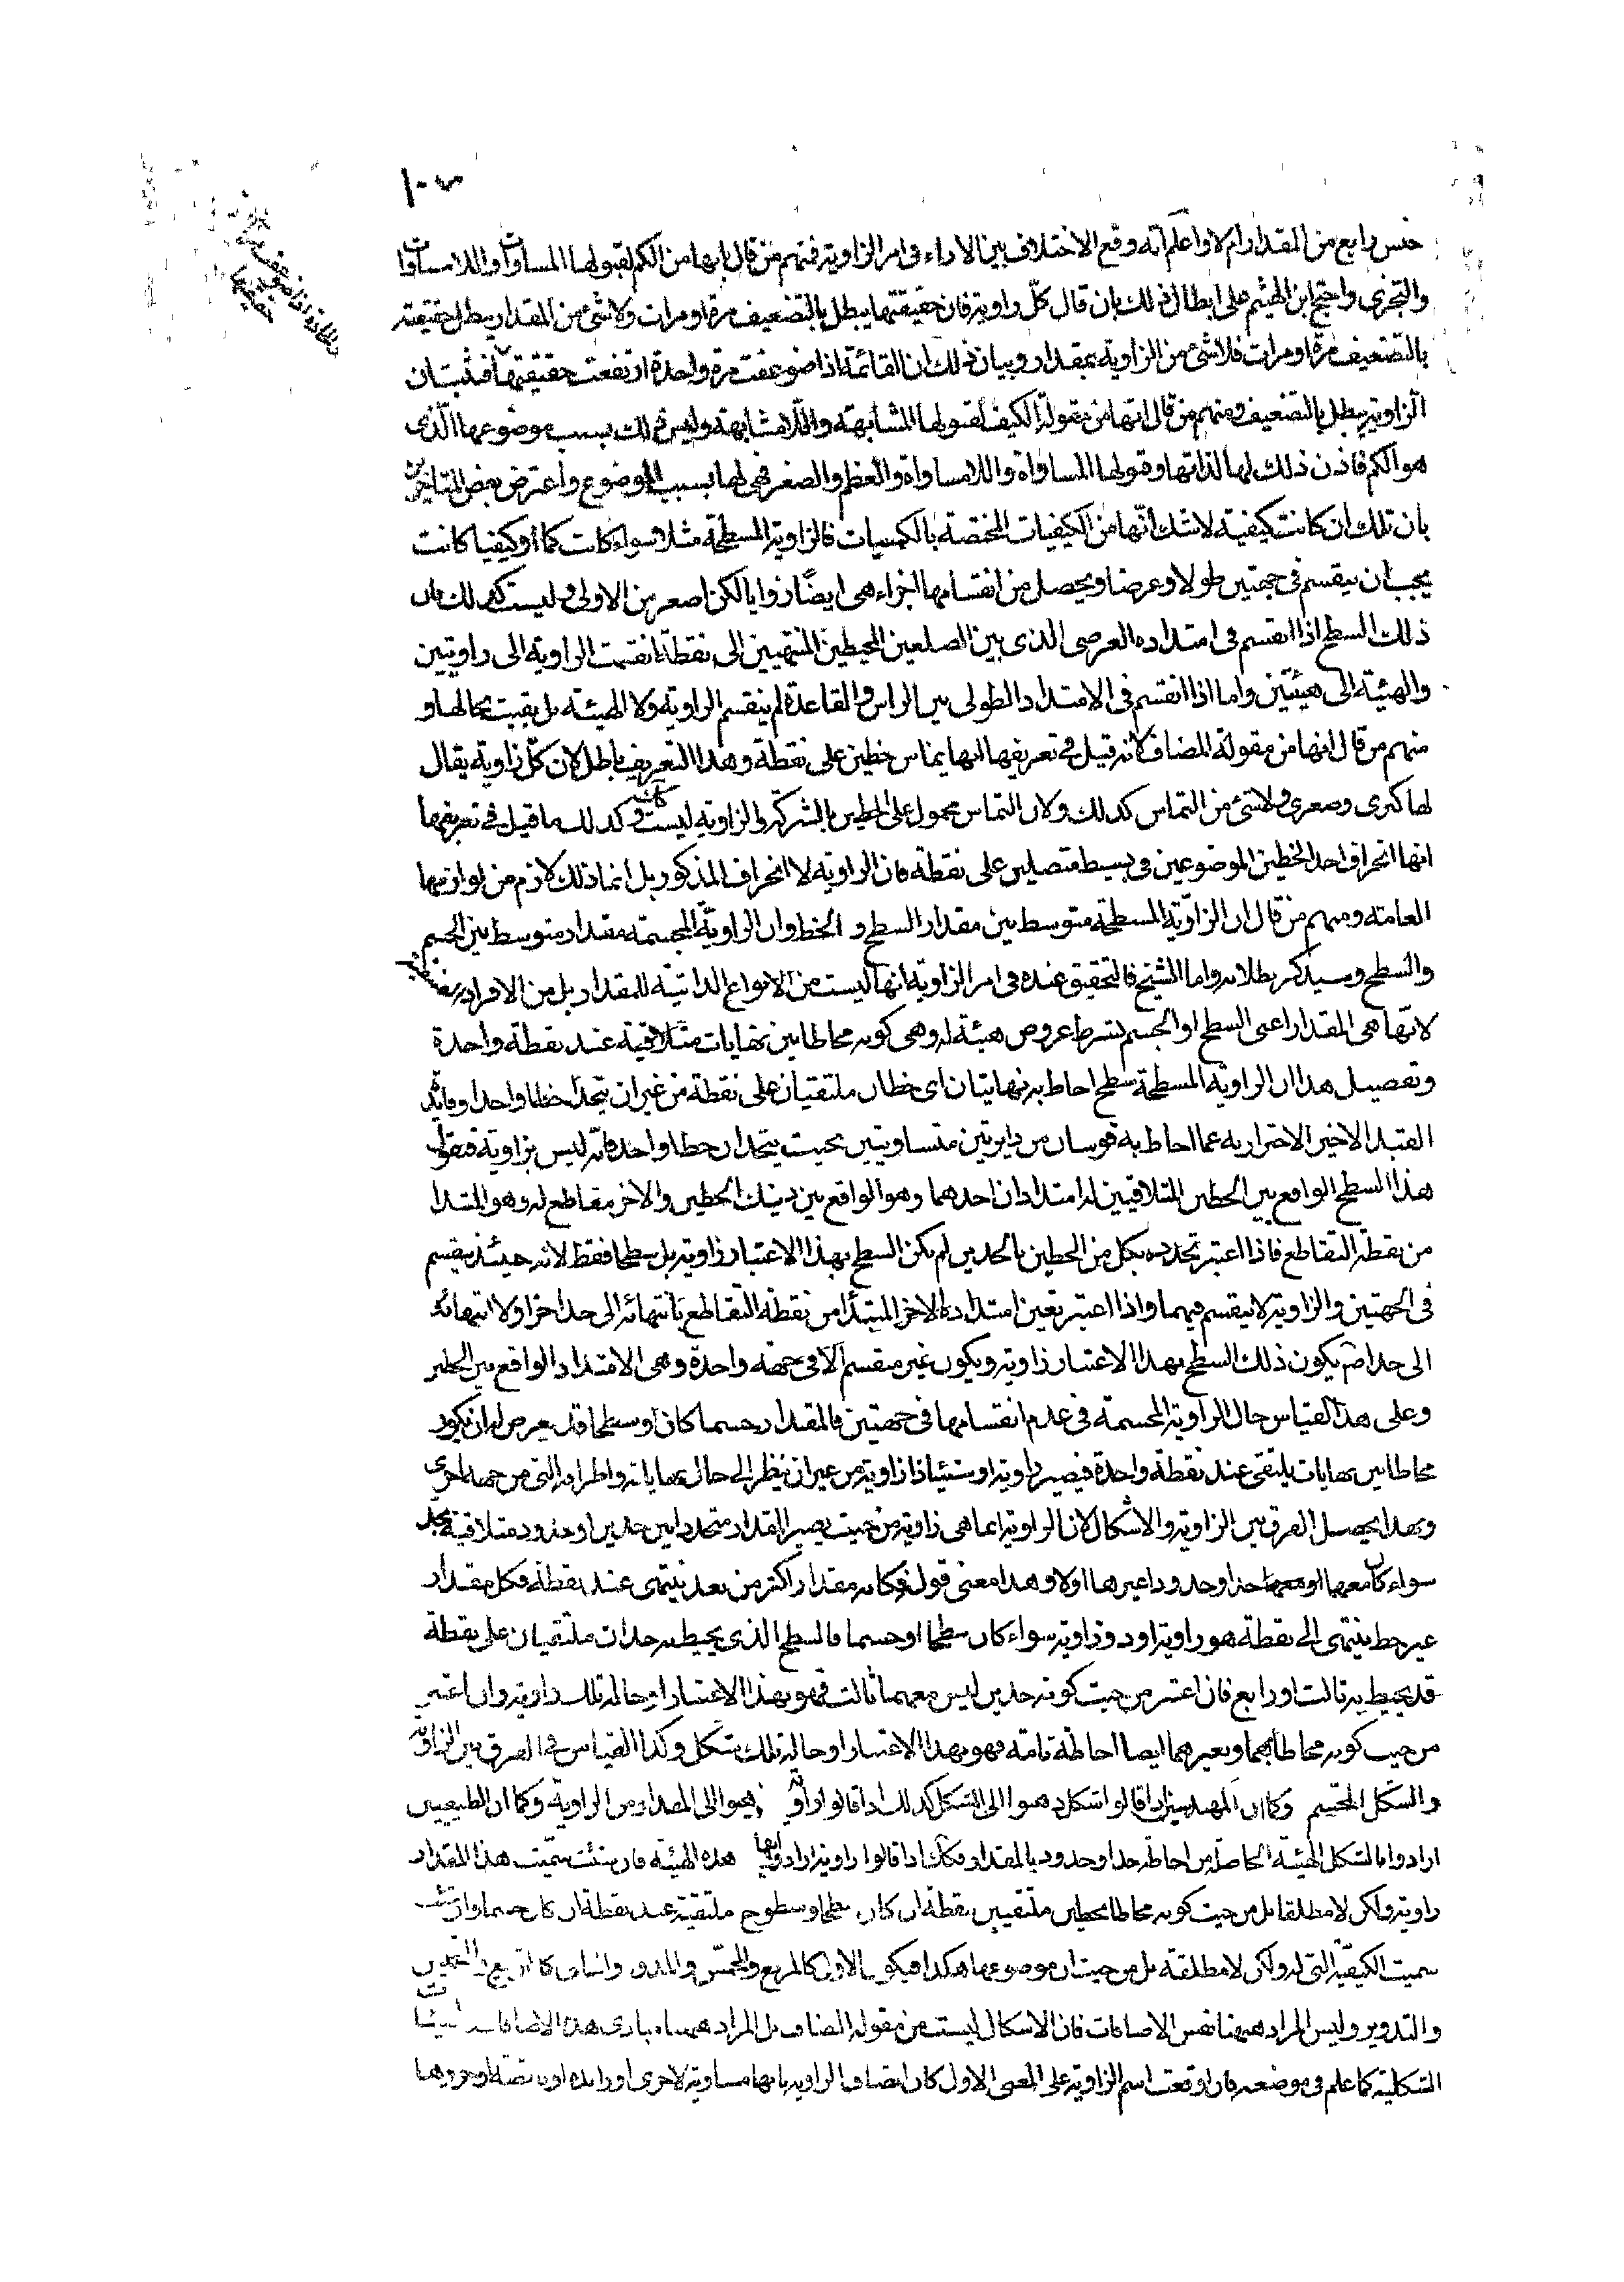 ١٠٧
جنس رابع من المقدار ام لا واعلم انه وقع الاختلاف بين الاراء فى امر الزاوية فمنهم من قال بانها من الكم لقبولها المساوات واللامساوات
والتجزى واحتج ابن الهيثم على ابطال ذلك بان قال كلّ زاوية فان حقيقتها يبطل بالتضعيف مرة او مرات ولا شئ من المقدار يبطل حقيقته
بالتضعيف مرّة او مرات فلا شئ من الزاوية بمقدار وبيان ذلك ان القائمة اذا ضوعفت مرة واحدة ارتفعت حقيقتها فثبت ان
الزاوية يبطل بالتضعيف ومنهم من قال انّها من مقولة الكيف لقبولها المشابهة واللامشابهة وليس ذلك بسبب موضوعها الّذى
هو الكم فاذن ذلك لها لذاتها وقبولها المساواة واللامساواة والعظم والصغر فهى لها بسبب الموضوع واعترض بعض المتاخرين
بان تلك ان كانت كيفية لا شك انّها من الكيفيات المختصة بالكميات فالزاوية المسطحة مثلا سواء كانت كما او كيفيا كانت
يجب ان ينقسم فى جهتين طولا وعرضا ويحصل من انقسامها اجزاء هى ايضًا زوايا لكن اصغر من الاولى وليست كذلك فان
ذلك السطح اذا انقسم فى امتداده العرضى الذى بين الضلعين المحيطين المنتهيين الى نقطة انقسمت الزاوية الى زاويتين
والهيئة الى هيئتين واما اذا انقسم فى الامتداد الطولى بين الراس والقاعدة لم ينقسم الزاوية ولا الهيئة بل بقيت بحالها و
منهم من قال انها من مقولة المضاف لانه قيل فى تعريفها انها يماس خطين على نقطة وهذا التعريف باطل لان كلّ زاوية يقال
لها كبرى وصغرى ولا شئ من التماس كذلك ولان التماس محمول على الخطين بالشركة والزاوية ليست كذلك وكذلك ما قيل فى تعريفها
انها انحراف احد الخطين الموضوعين فى بسيط متصلين على نقطة فان الزاوية لا انحراف المذكور بل انما ذلك لازم من لوازمها
العامة ومنهم من قال ان الزاوية المسطحة متوسط بين مقدار السطح و الخط وان الزاوية المجسمة مقدار متوسط بين الجسم
والسطح وسيذكر بطلانه واما الشيخ فالتحقيق عنده فى امر الزاوية انها ليست من الانواع الذاتية للمقدار بل من الافراد
لانّها هى المقدار اعنى السطح او الجسم بشرط عروض هيئة له وهى كونه محاطا بين نهايات متلاقية عند نقطة واحدة
وتفصيل هذا ان الزاوية المسطحة سطح احاط به نهايتان اى خطان ملتقيان على نقطة من غير ان يتحدا خطا واحدا وفائدة
القيد الاخير الاحتراز به عما احاط به قوسان من دايرتين متساويتين بحيث يتحدان خطا واحدا فانه ليس بزاوية فنقول
هذا السطح الواقع بين الخطين المتلاقيين له امتدادان احدهما وهو الواقع بين ذينك الخطين والاخر مقاطع له وهو المبتدا
من نقطة التقاطع فاذا اعتبر تحدده بكل من الخطين بالحدين لم يكن السطح بهذا الاعتبار زاوية بل سطحا فقط لانه حينئذ ينقسم
فى الجهتين والزاوية لا ينقسم فيهما واذا اعتبر تعين امتداده الاخر المبتدا من نقطة التقاطع بانتهائه الى حد اخر او لا انتهائه
الى حد اصم يكون ذلك السطح بهذا الاعتبار زاوية ويكون غير منقسم الا فى جهة واحدة وهى الامتداد الواقع بين الخطين
وعلى هذا القياس حال الزاوية المجسمة فى عدم انقسامها فى جهتين فالمقدار جسما كان او سطحا قد يعرض له ان يكون
محاطا بين نهايات يلتقى عند نقطة واحدة فيصير زاوية او شيئا ذا زاوية من غير ان ينظر الى حال نهاياته واطرافه التى من جهة اخرى
وبهذا يحصل الفرق بين الزاوية والاشكال لان الزاوية انما هى زاوية من حيث يصير المقدار متحددا بين حدين او حدود متلاقية بحد
سواء كان معهما او معها حد او حدود اغيرها اولا وهذا معنى قوله فكانه مقدار اكثر من بعد ينتهى عند نقطة فكل مقدار
غير خط ينتهى الى نقطة هو زاوية او ذو زاوية سواء كان سطحا او جسما فالسطح الذى يحيط به حدان ملتقيان على نقطة
قد يحيط به ثالث او رابع فان اعتبر من حيث كونه حدين ليس معهما ثالث فهو بهذا الاعتبار او حالة تلك زاوية وان اعتبر
من حيث كونه محاطا بهما وبغيرهما ايضا احاطة تامة فهو بهذا الاعتبار او حالة تلك شكل وكذا القياس فى الفرق بين الزاوية
والشكل المجسم وكما ان المهندسين اذا قالوا شكل ذهبوا الى المشكل كذلك اذا قالوا زاوية ذهبوا الى المقدار من الزاوية وكما ان الطبيعيين
ارادوا بالشكل الهيئة الحاصلة من احاطة حد او حدود بالمقدار فكذا اذا قالوا زاوية ارادوا بها هذه الهيئة فان شئت سمّيت هذا المقدار
زاوية ولكن لا مطلقا بل من حيث كونه محاطا بخطين ملتقيين بنقطة ان كان سطحا وسطوح ملتقية عند نقطة ان كان جسما وان شئت
سميت الكيفية التى له ولكن لا مطلقة بل من حيث ان موضوعها هكذا فيكون الاول كالمربع والمخمس والمدور والثانى كالتربيع والتخميس
والتدوير وليس المراد ههنا نفس الاضافات فان الاشكال ليست من مقولة المضاف بل المراد مبادى هذه الاضافات
الشكلية كما علم فى موضعه فان اوقعت اسم الزاوية على المعنى الاول كان اتصاف الزاوية بانها مساوية لاخرى او زائدة او ناقصة